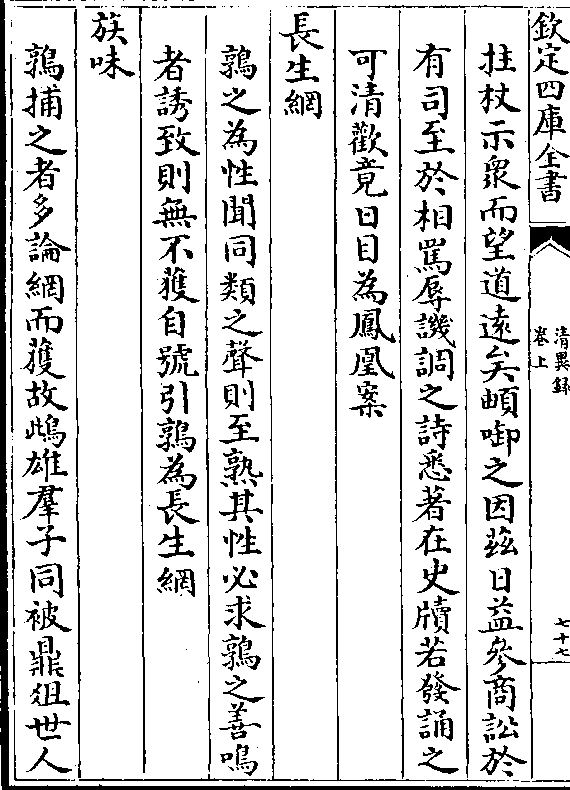 欽定四庫全書
清異錄
卷上
七十七
拄杖示衆而望道遠矣頔啣之因兹日益參商訟於
有司至於相罵辱譏調之詩悉著在史牘若發誦之
可清歡竟日目為鳳凰案
長生網
鶉之為性聞同類之聲則至熟其性必求鶉之善鳴
者誘致則無不獲自號引鶉為長生網
族味
鶉捕之者多論網而獲故雌雄羣子同被鼎俎世人